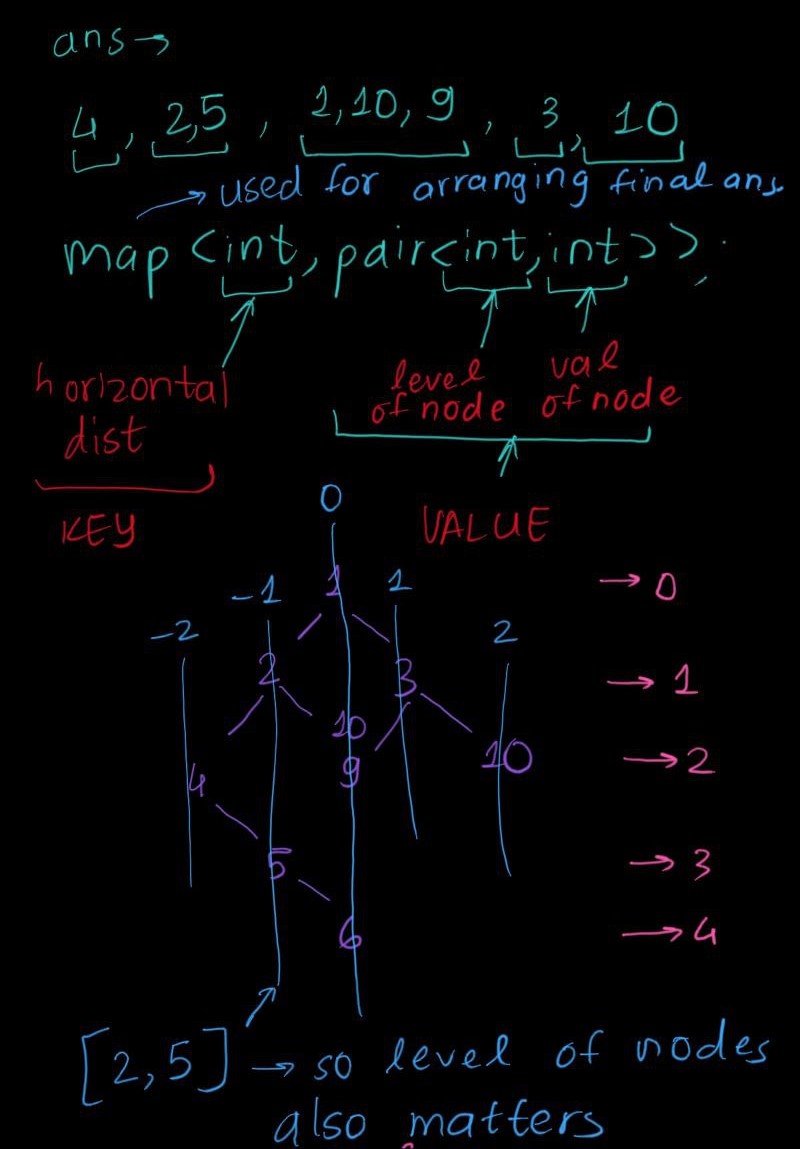 ans →
4, 2,5, 1,10,9, 3, 10
→ used for arranging final ans.
map <int, pair<int,int>>;
horizontal dist
level of node
val of node
KEY
VALUE
0
-1 1 1 → 0
-2 2
2 3 → 1
10
9 10 → 2
4
5 → 3
6 → 4
[2,5] → so level of nodes
also matters